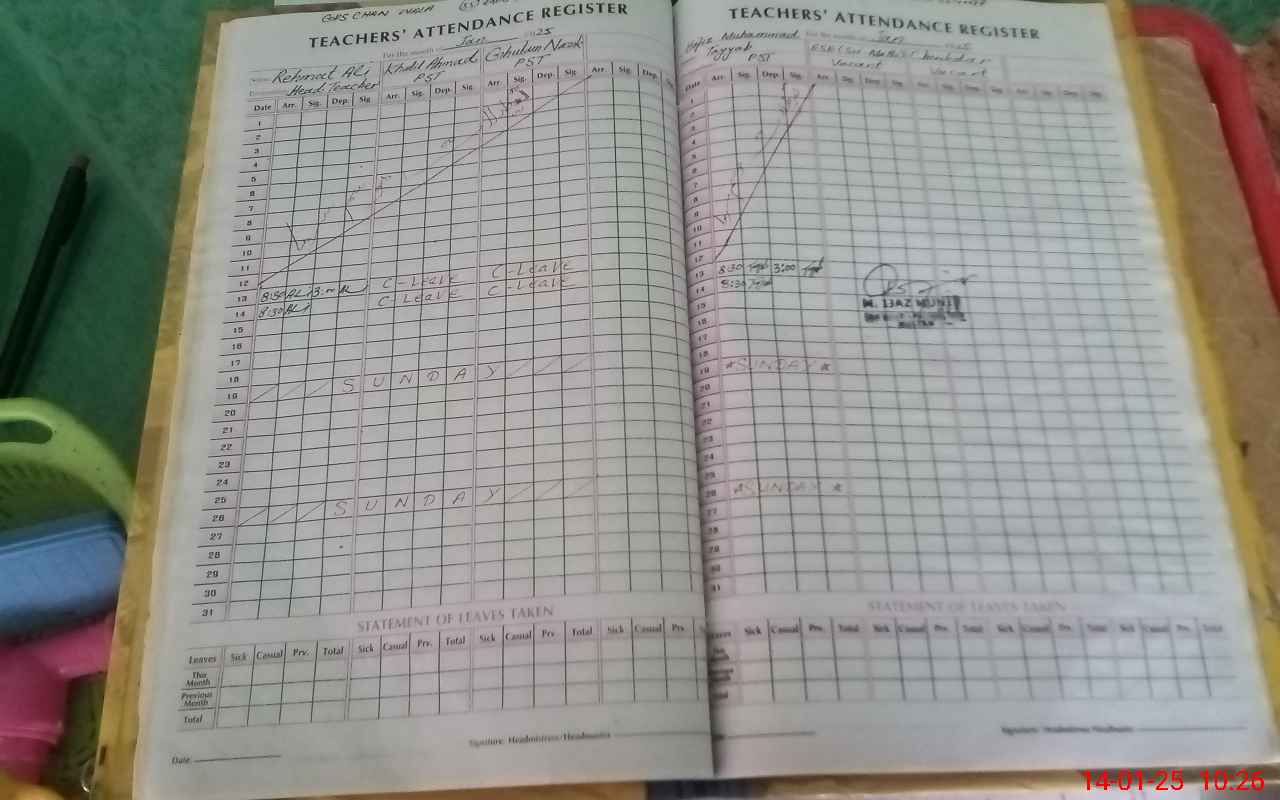 TEACHERS' ATTENDANCE REGISTER
For the month of Jan 2025
Name Rehmat Ali
Khalil Ahmad
Designation Head Teacher
PST
PST
Date Arr. Sig. Dep. Sig Arr. Sig. Dep. Sig Arr. Sig. Dep. Sig. Arr. Sig. Dep.
1
2
3
4
5
6
7
8
9
10
11
12
13 8:30 C-Leave C-Leave
14 8:30 C-Leave C-Leave
15
16
17
18
19 SUNDAY
20
21
22
23
24
25
26 SUNDAY
27
28
29
30
31
STATEMENT OF LEAVES TAKEN
Leaves Sick Casual Prv. Total Sick Casual Prv. Total Sick Casual Prv. Total Sick Casual Prv.
This Month
Previous Month
Total
Signature: Headmistress/Headmaster
Date
TEACHERS' ATTENDANCE REGISTER
For the month of Jan
Hafiz Muhammad
Tayyab
PST
Vacant
Vacant
Arr. Sig. Dep. Sig. Arr. Sig.
1
2
3
4
5
6
7
8
9
10
11
12
13 8:30 3:00
14 8:30
15
16
17
18
19 *SUNDAY*
20
21
22
23
24
25
26 *SUNDAY*
27
28
29
30
31
M. IJAZ MUNIR
STATEMENT OF LEAVES TAKEN
Leaves Sick Casual Prv. Total Sick Casual Prv. Total Sick Casual Prv. Total Sick Casual Prv. Total
Signature: Headmistress/Headmaster
14-01-25 10:26